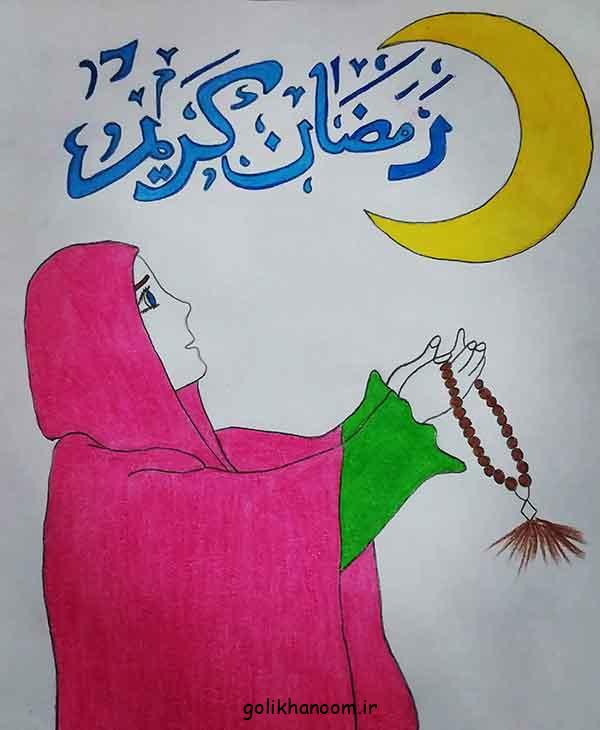 رَمَضَان كَرِيم
golikhanoom.ir